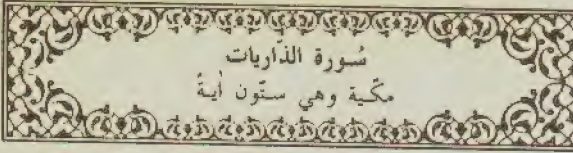 سُورة الذاريات
مكّية وهي ستّون أيةً